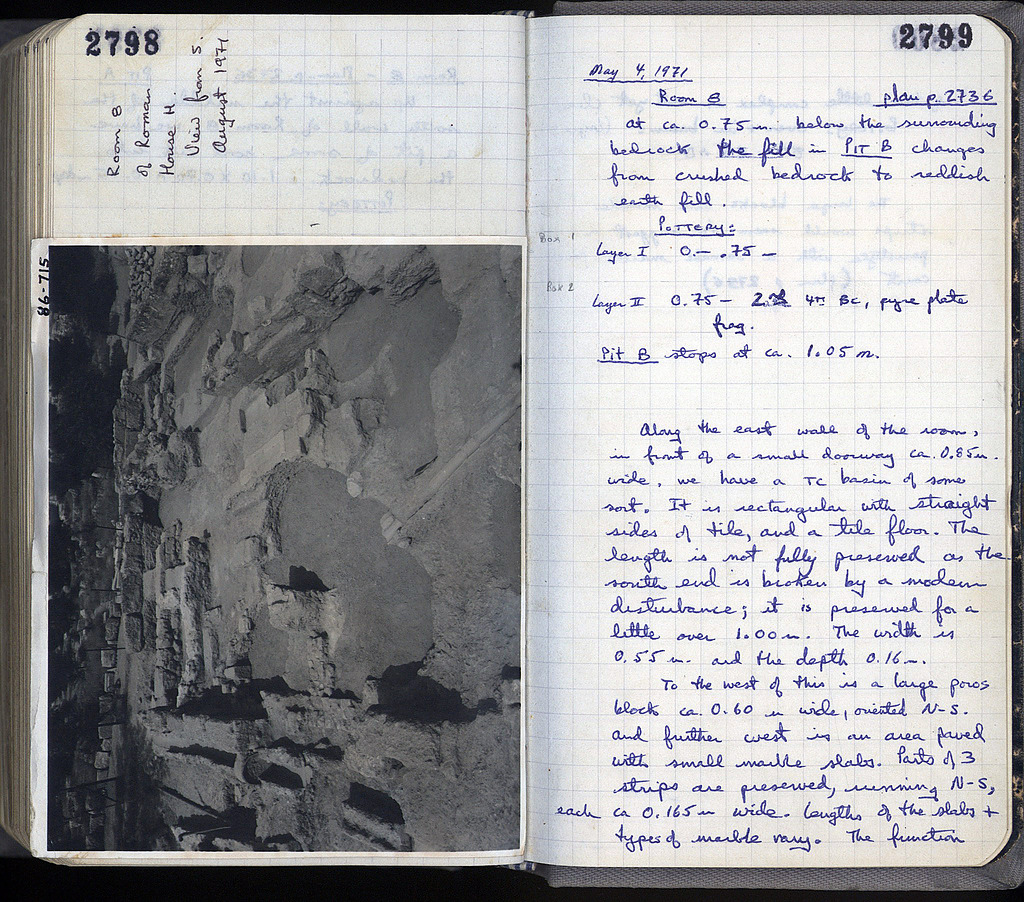 2798
Room B
of Roman
House H.
View from S.
August 1971
86-715
2799
May 4, 1971
Room B plan p. 2736
at ca. 0.75 m. below the surrounding
bedrock the fill in PIT B changes
from crushed bedrock to reddish
earth fill.
POTTERY:
Box 1
Layer I 0.— .75 —
Box 2
Layer II 0.75 — 4th BC, pyre plate
frag.
Pit B stops at ca. 1.05 m.
Along the east wall of the room,
in front of a small doorway ca. 0.85 m.
wide, we have a TC basin of some
sort. It is rectangular with straight
sides of tile, and a tile floor. The
length is not fully preserved as the
south end is broken by a modern
disturbance; it is preserved for a
little over 1.00 m. The width is
0.55 m. and the depth 0.16 m.
To the west of this is a large poros
block ca. 0.60 m wide, oriented N-S.
and further west is an area paved
with small marble slabs. Parts of 3
strips are preserved, running N-S,
each ca 0.165 m wide. Lengths of the slabs +
types of marble vary. The function